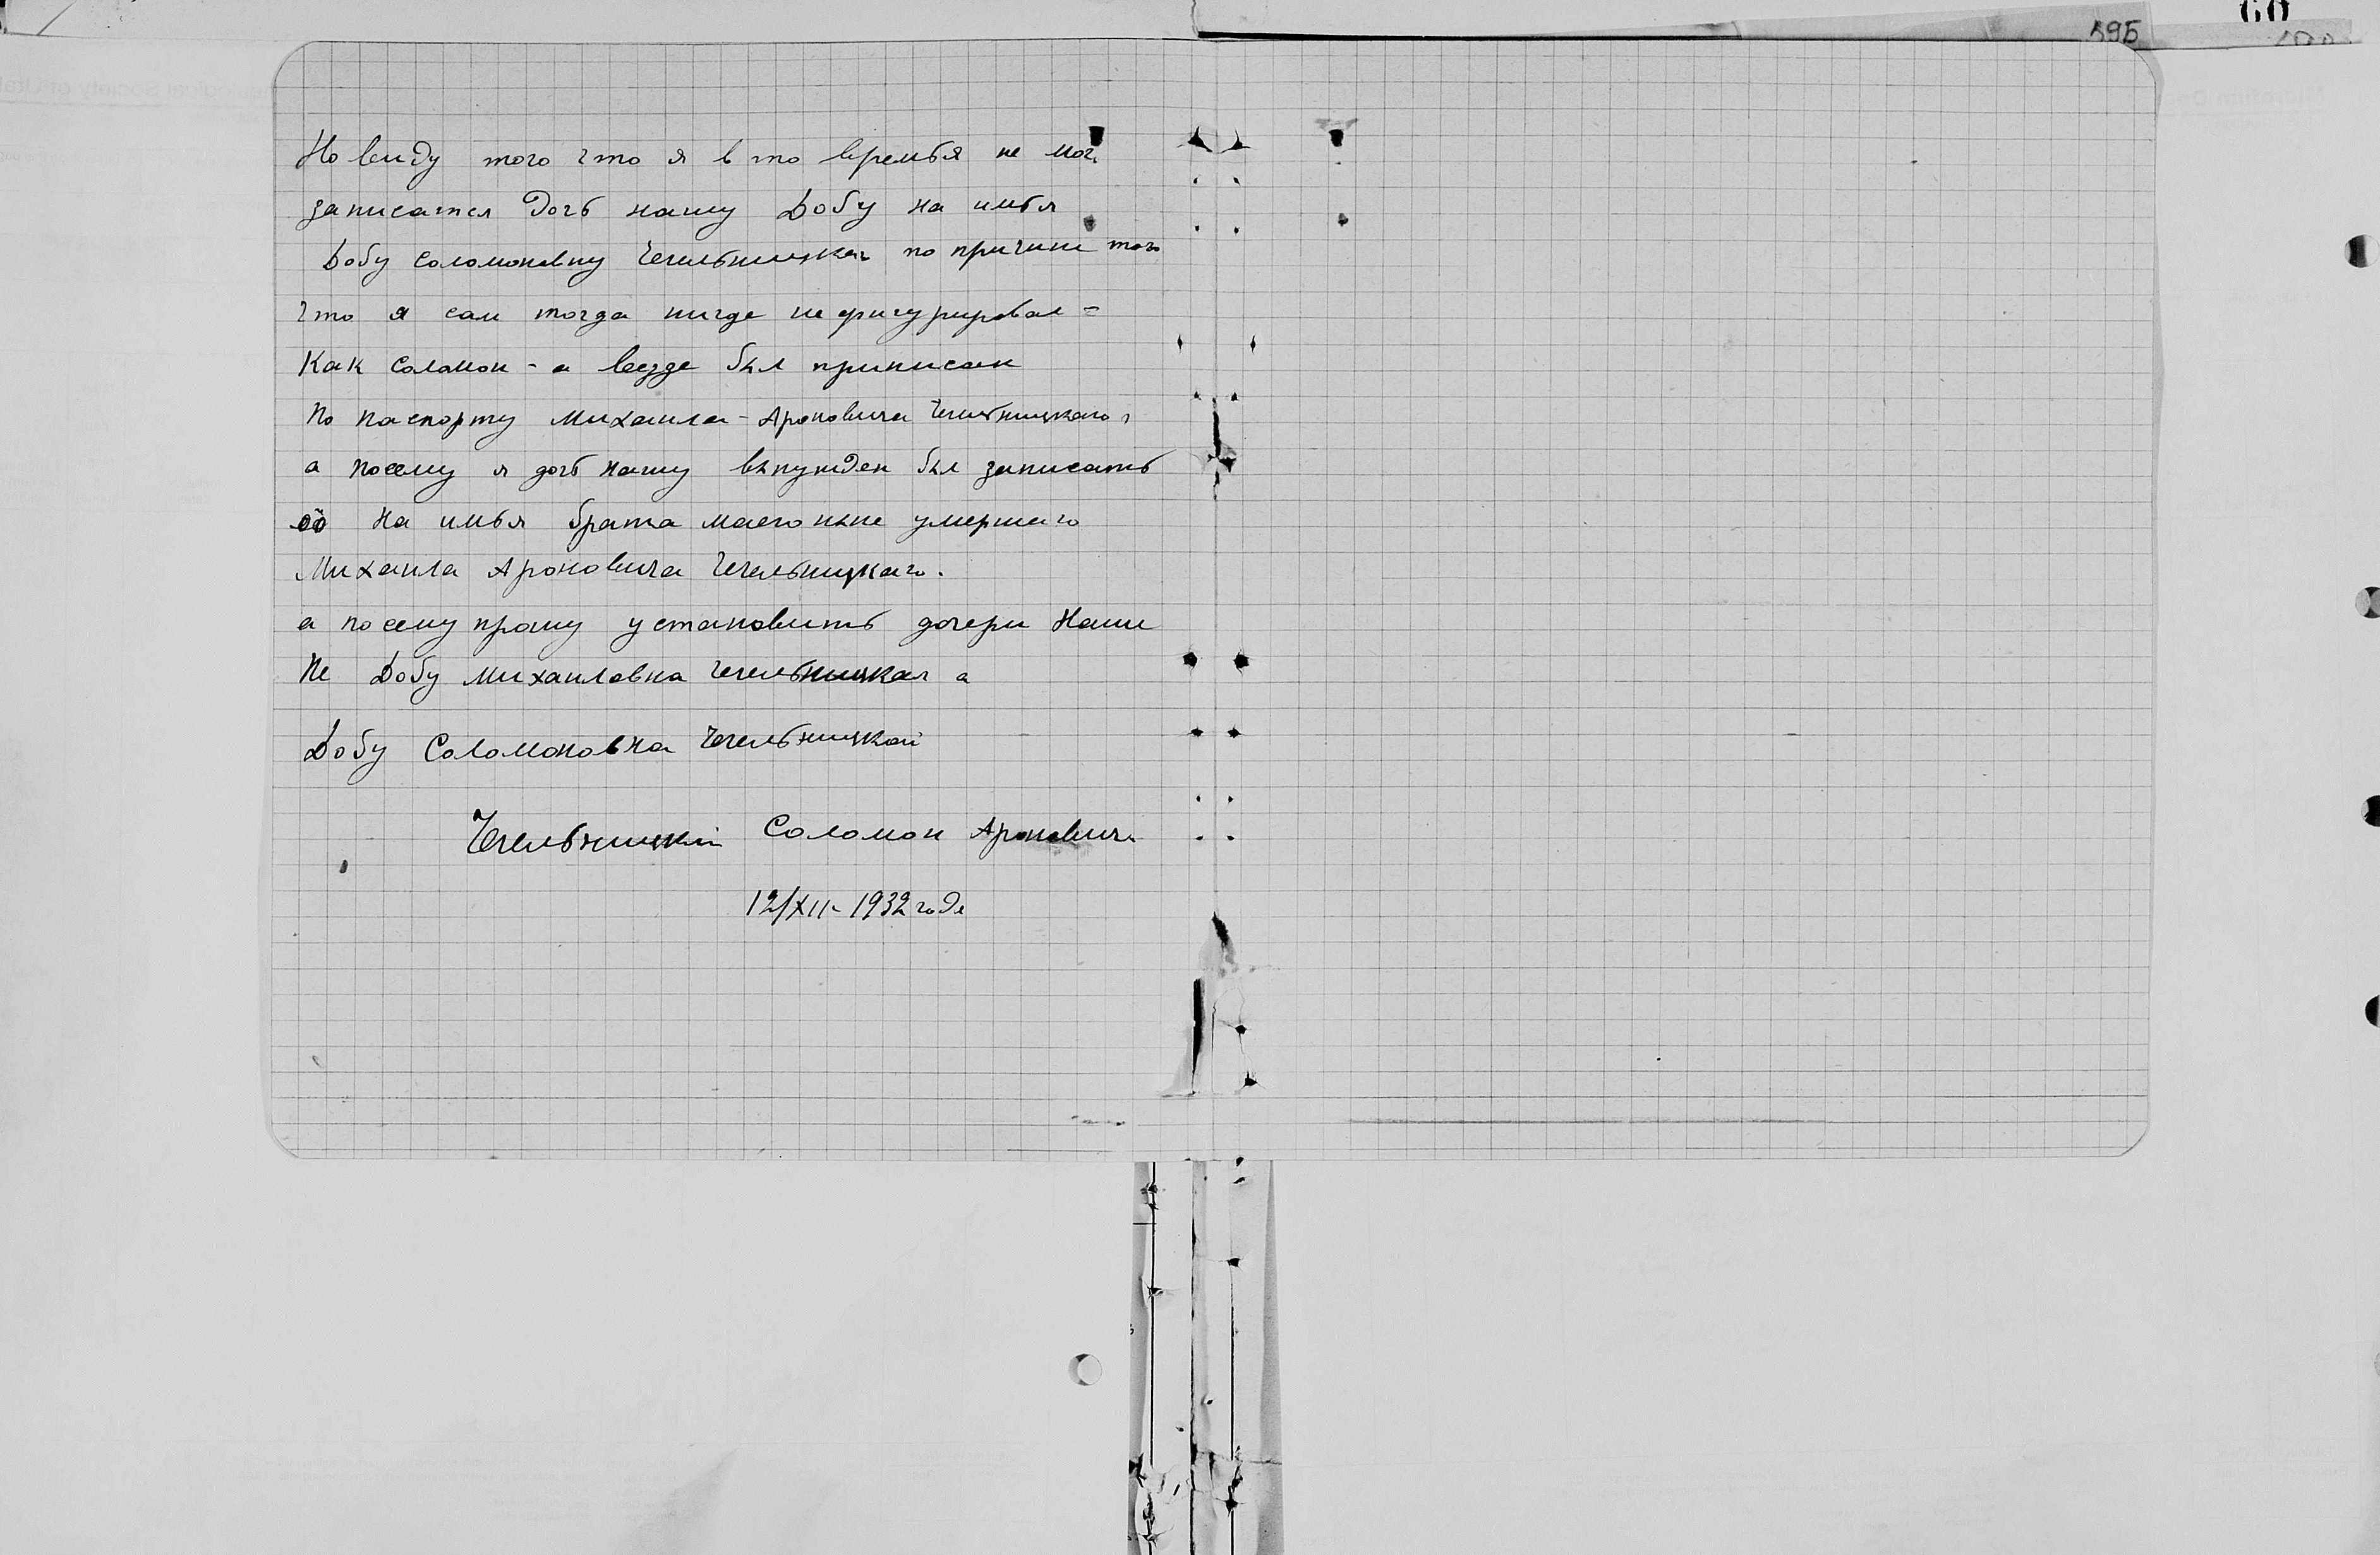 60
595
Но виду того что я в то времья не мог
записатся дочь нашу Добу на имья
Добу Соломоновну Чечельницкая по причине того
что я сам тогда нигде не фигурировал =
Как Соломон - а везде был приписан
по паспорту Михаила - Ароновича Чечельницкаго,
а посему я дочь нашу вынужден был записать
её на имья брата маего ныне умершаго
Михаила Ароновича Чечельницкаго.
а по сему прошу установить дочери наше
Не Добу Михаиловна Чечельницкая а
Добу Соломоновна Чечельницкой
Чечельницкий Соломон Аронович
12/XII - 1932 года